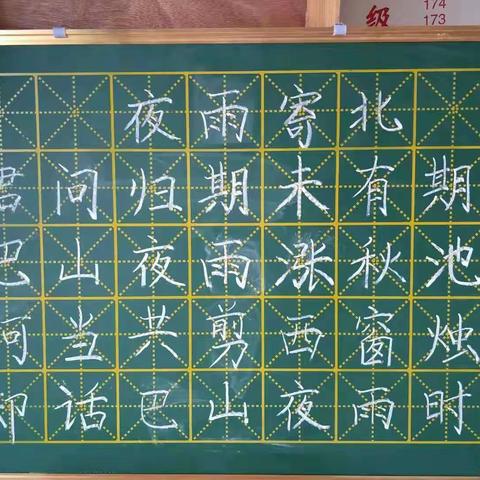 级
174
173
夜雨寄北
君问归期未有期
巴山夜雨涨秋池
何当共剪西窗烛
却话巴山夜雨时